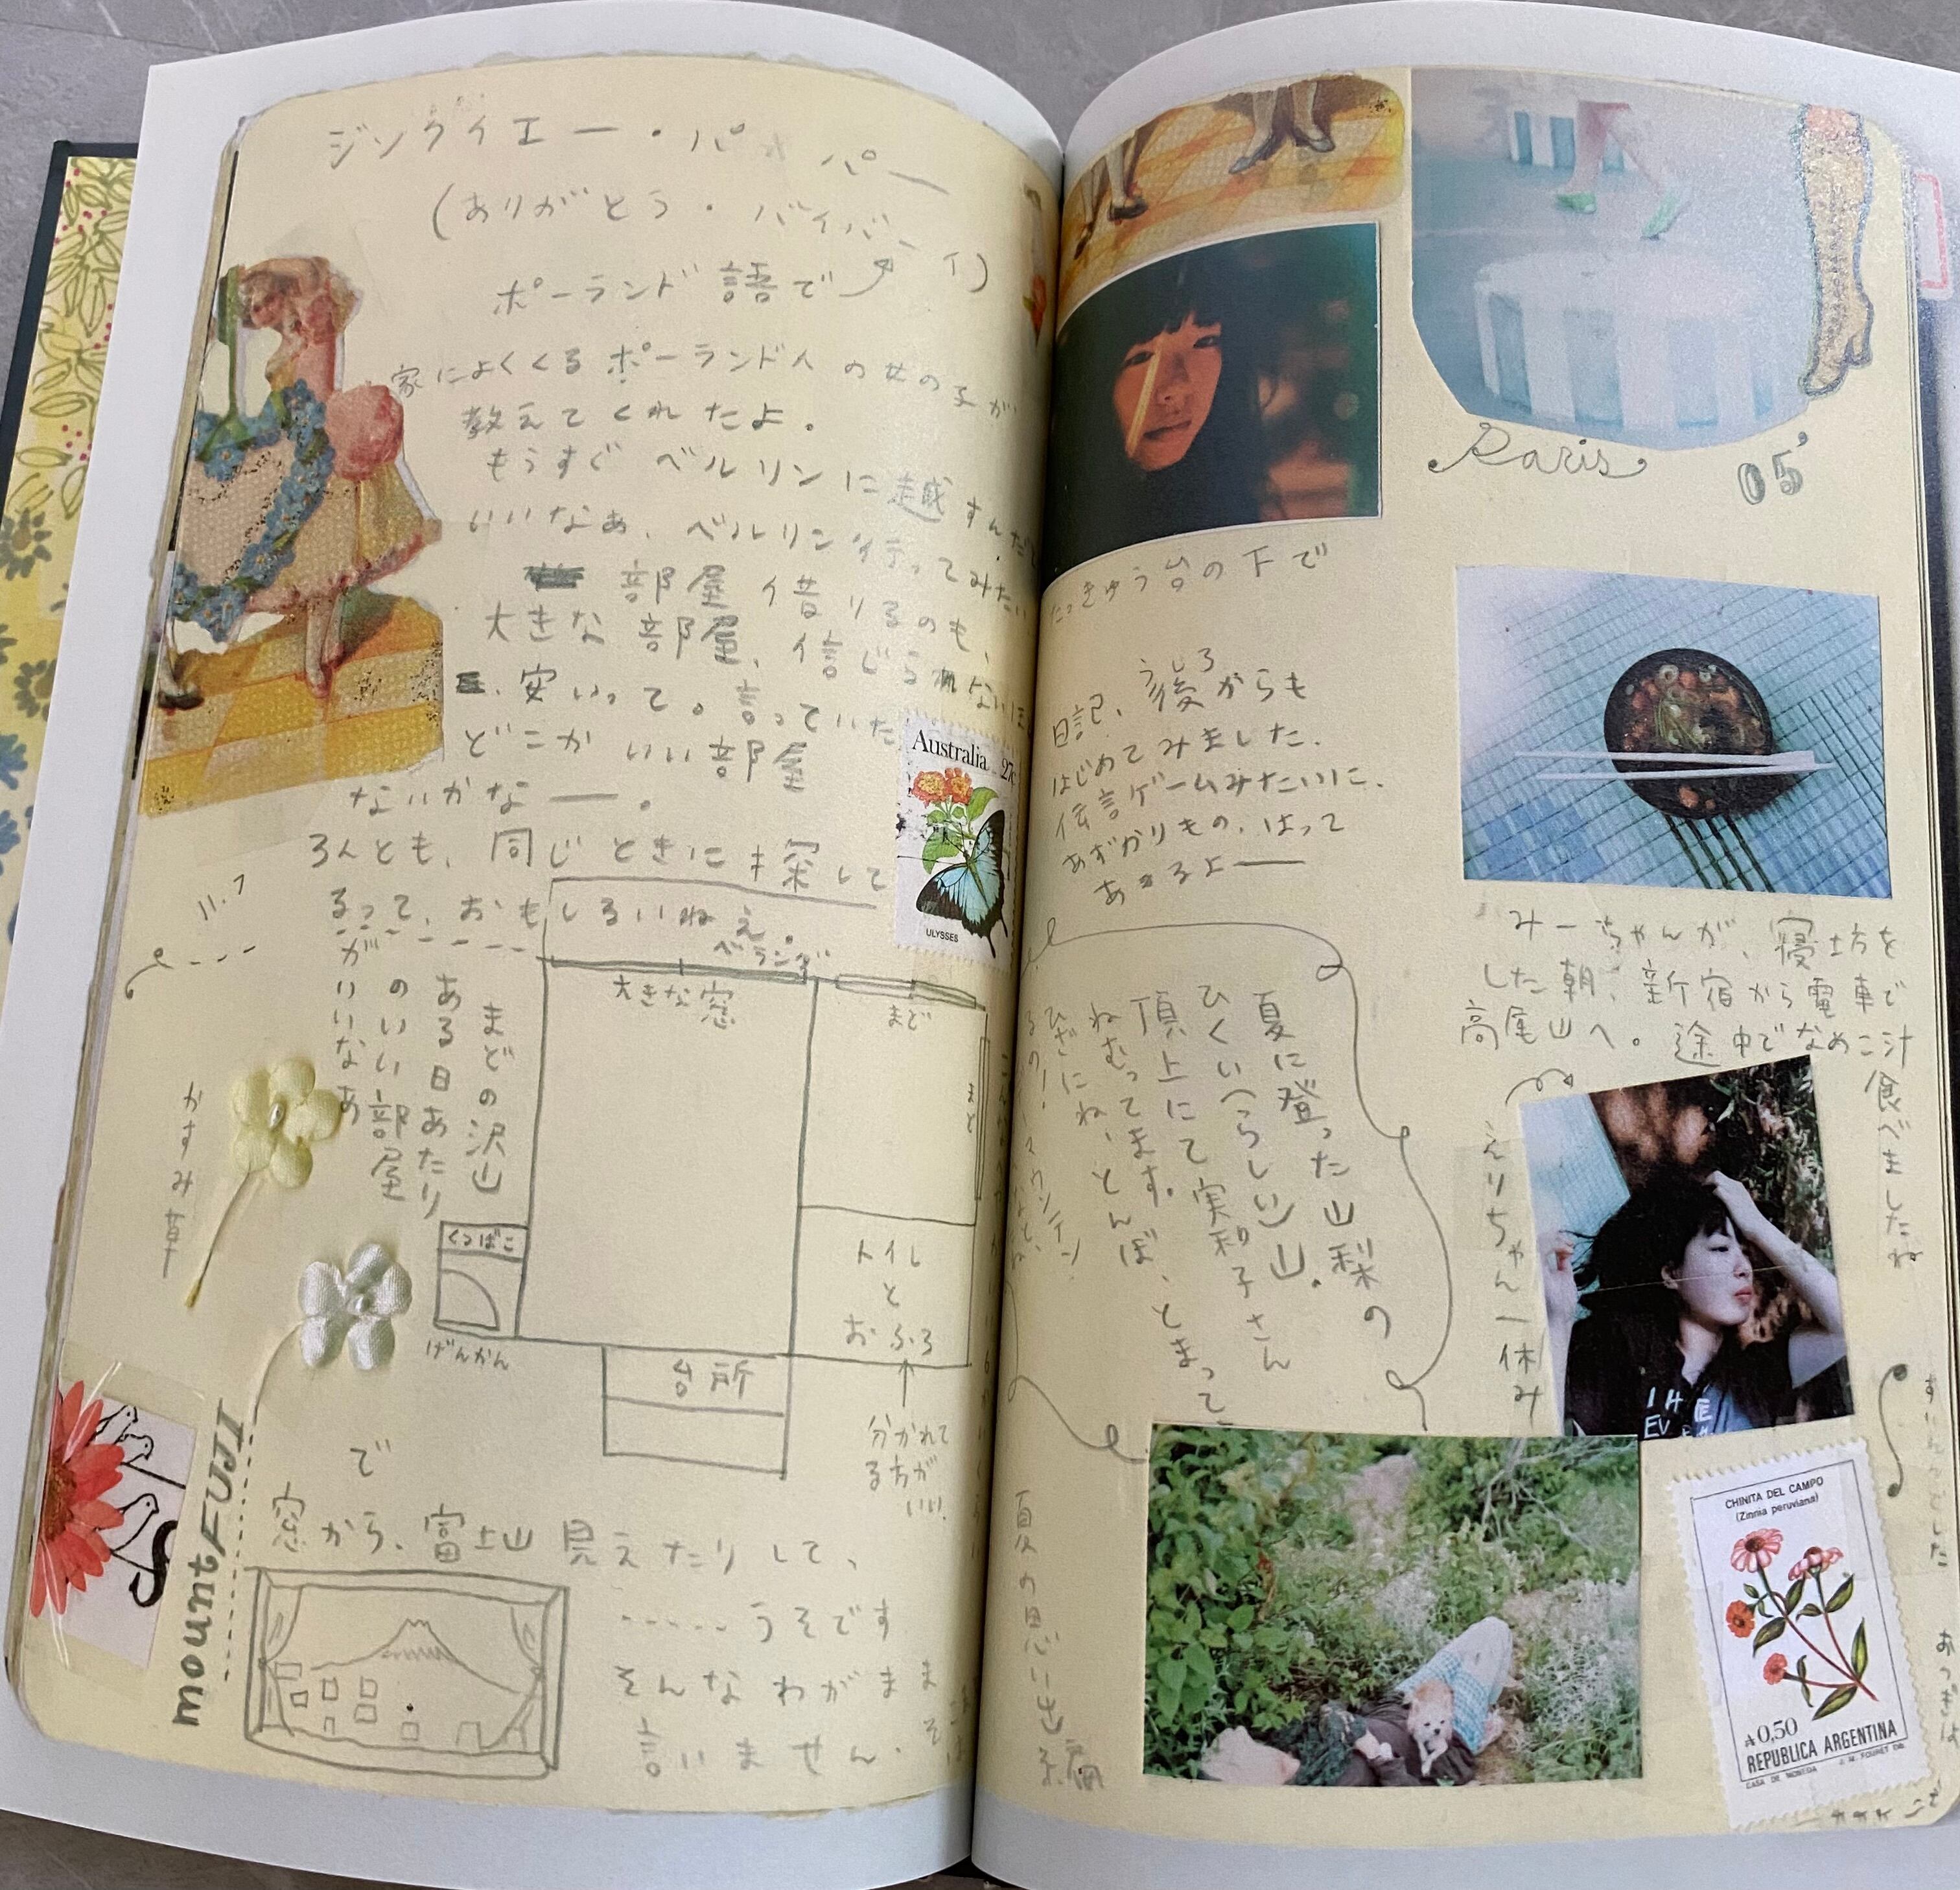 ジンクイエー・パ パー
(ありがとう・バイバーイ)
ポーランド語で
家によくくるポーランド人の女の子が
教えてくれたよ。
もうすぐ ベルリンに越すんだと
いいなぁ、ベルリン行ってみたい
部屋 借りるのも、
大きな部屋、信じられないほ
安いって。言っていた
どこか いい部屋
ないかなー。
ろんとも、同じときに探して
るって、おもしろいねえ。
11.7
ベランダ
大きな窓
まど
まど
まどの沢山
ある日あたり
のいい部屋
がいいなあ
かすみ草
くつばこ
げんかん
トイレ
と
おふろ
分かれて
る方が
いい。
台所
で
窓から、富士山 見えたりして、
うそです
そんなわがまま
言いません。
mount FUJI
Australia 27c
ULYSSES
Paris
05'
たっきゅう台の下で
日記、後からも
うしろ
はじめてみました。
伝言ゲームみたいに、
あずかりもの、はって
あるよー
夏に登った山梨の
ひくいへらしい山。
頂上にて実和子さん
ねむってます。
ひざにね、とんぼ、とまって
るの!
みーちゃんが、寝坊を
した朝、新宿から電車で
高尾山へ。途中でなめこ汁
食べましたね
えりちゃん一休み
夏の思い出
CHINITA DEL CAMPO
(Zinnia peruviana)
A 0,50
REPUBLICA ARGENTINA
CASA DE MONEDA